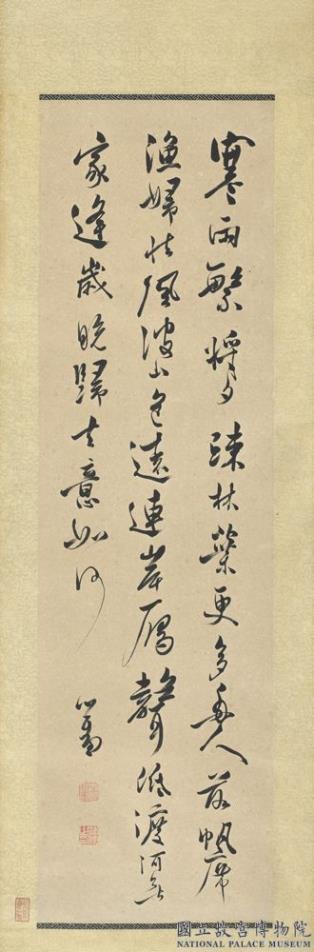 寒雨繁將夕疎林葉更多舟人落帆席
漁婦怯風波山色遠連岸雁聲低渡河無
家逢歲晚歸去意如何
心畬
國立故宮博物院
NATIONAL PALACE MUSEUM